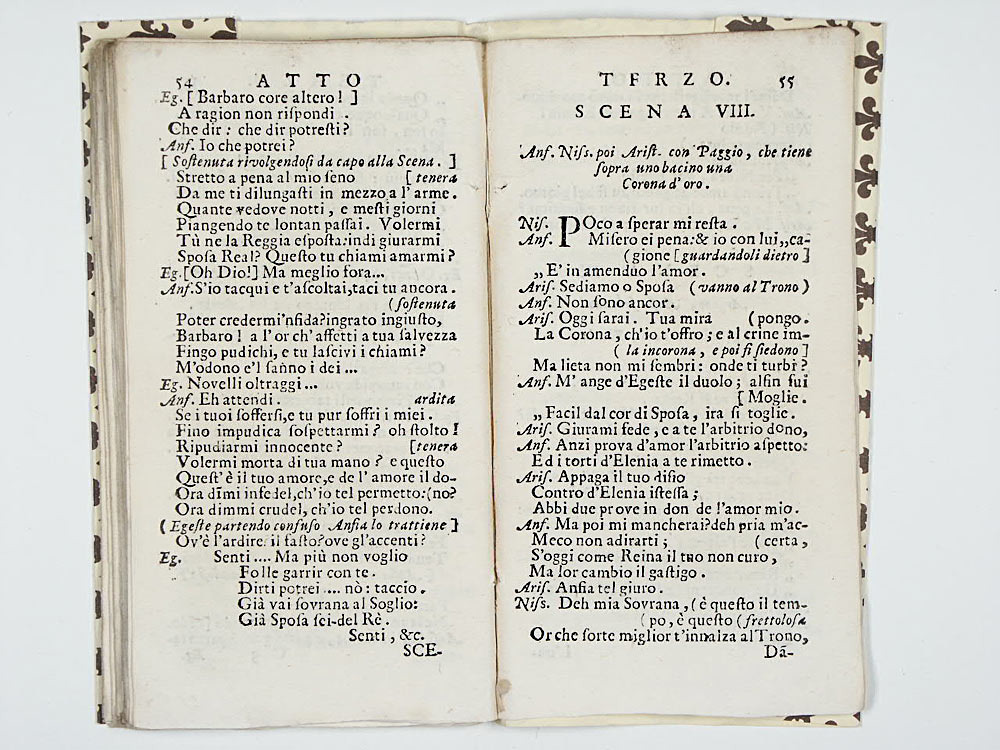 54 ATTO
Eg. [ Barbaro core altero! ]
A ragion non riſpondi .
Che dir : che dir potreſti?
Anſ. Io che potrei?
[ Soſtenuta rivolgendoſi da capo alla Scena. ]
Stretto a pena al mio ſeno [ tenera
Da me ti dilungaſti in mezzo a l'arme.
Quante vedove notti , e meſti giorni
Piangendo te lontan paſſai. Volermi
Tù ne la Reggia eſpoſta:indi giurarmi
Spoſa Real? Queſto tu chiami amarmi?
Eg.[Oh Dio!] Ma meglio fora...
Anſ.S'io tacqui e t'aſcoltai,taci tu ancora.
(ſoſtenuta
Poter credermi'nfida?ingrato ingiuſto,
Barbaro! a l'or ch'affetti a tua ſalvezza
Fingo pudichi, e tu laſcivi i chiami?
M'odono e'l ſanno i dei ...
Eg. Novelli oltraggi ...
Anſ. Eh attendi. ardita
Se i tuoi ſofferſi,e tu pur ſoffri i miei.
Fino impudica ſoſpettarmi? oh ſtolto!
Ripudiarmi innocente? [tenera
Volermi morta di tua mano? e queſto
Queſt'è il tuo amore,e de l'amore il do-
Ora dīmi infedel,ch'io tel permetto:(no?
Ora dimmi crudel, ch'io tel perdono.
( Egeſte partendo confuſo Anſia lo trattiene ]
Ov'è l'ardire. il faſto?ove gl'accenti?
Eg. Senti .... Ma più non voglio
Folle garrir con te.
Dirti potrei .... nò: taccio.
Già vai ſovrana al Soglio:
Già Spoſa ſei-del Rè.
Senti , &c.
SCE-
TFRZO. 55
SCENA VIII.
Anſ. Niſs. poi Ariſt. con Paggio, che tiene
ſopra uno bacino una
Corona d'oro.
Niſ. POco a ſperar mi reſta .
Anſ. Miſero ei pena:& io con lui,,ca-
(gione [guardandoli dietro]
,, E' in amenduo l'amor.
Ariſ. Sediamo o Spoſa (vanno al Trono)
Anſ. Non ſono ancor.
Ariſ. Oggi ſarai. Tua mira (pongo.
La Corona, ch'io t'offro ; e al crine im-
( la incorona, e poi ſi ſiedono ]
Ma lieta non mi ſembri: onde ti turbi?
Anſ. M' ange d'Egeſte il duolo ; alfin fui
[ Moglie.
,, Facil dal cor di Spoſa, ira ſi toglie.
Ariſ. Giurami fede, e a te l'arbitrio dono,
Anſ. Anzi prova d'amor l'arbitrio aſpetto:
Ed i torti d'Elenia a te rimetto.
Ariſ. Appaga il tuo diſio
Contro d'Elenia iſteſſa ;
Abbi due prove in don de l'amor mio.
Anſ. Ma poi mi mancherai?deh pria m'ac-
Meco non adirarti ; ( certa,
S'oggi come Reina il tuo non curo,
Ma lor cambio il gaſtigo.
Ariſ. Anſia tel giuro.
Niſs. Deh mia Sovrana, ( è queſto il tem-
( po, è queſto (frettoloſa
Or che ſorte miglior t'innalza al Trono,
Dā-